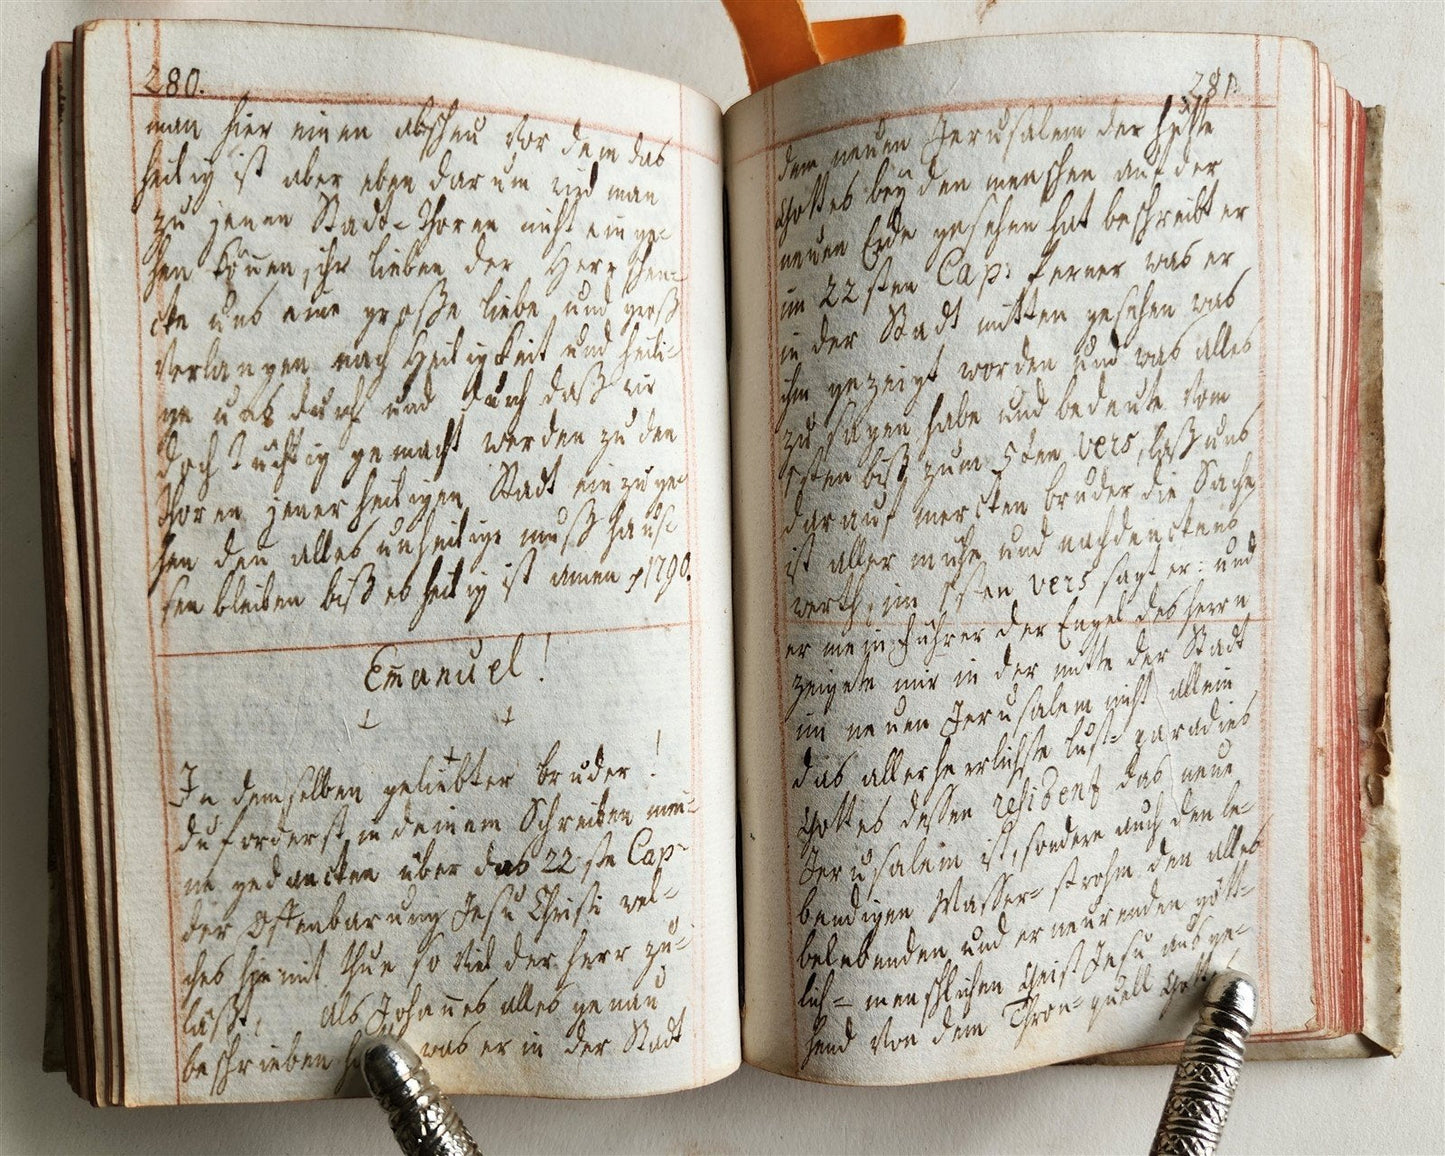 280.
man hier einen abscheu vor dem das
heilig ist aber eben darum wird man
zu jenen Stadt-Thoren nicht ein ge-
hen können, ihr lieben der Herr schen-
cke uns eine große liebe und groß
verlangen nach Heiligkeit und heili-
ge uns durch und durch daß wir
doch tüchtig gemacht werden zu den
thoren jener heiligen Stadt ein zu ge-
hen den alles unheilige muß hauß-
sen bleiben biß es heilig ist amen 1790.
Em̄anuel!
In demselben geliebter bruder!
du forderst in deinem Schreiben mei-
ne gedancken über das 22ste Cap-
der Offenbarung Jesu Christi wel-
ches hiemit thue so viel der herr zu-
läßt, als Johan̄es alles genau
beschrieben was er in der Stadt
281.
dem neuen Jerusalem der hütte
Gottes bey den menschen auf der
neuen Erde gesehen hat beschreibt er
im 22sten Cap: ferner was er
in der Stadt mitten gesehen was
ihm gezeigt worden und was alles
zu sagen habe und bedeute vom
1sten biß zum 5ten vers, laß uns
darauf mercken bruder die Sache
ist aller mühe und nachdenckens
werth, im 1sten vers sagt er: und
er mein führer der Engel des herrn
zeigete mir in der mitte der Stadt
im neuen Jerusalem nicht allein
das allerherrlichste lust-paradies
Gottes dessen residentz das neue
Jerusalem ist, sondern auch den le-
bendigen Wasser-strohm den alles
belebenden und erneurenden gött-
lich-menschlichen Geist Jesu aus ge-
hend von dem Thron-quell